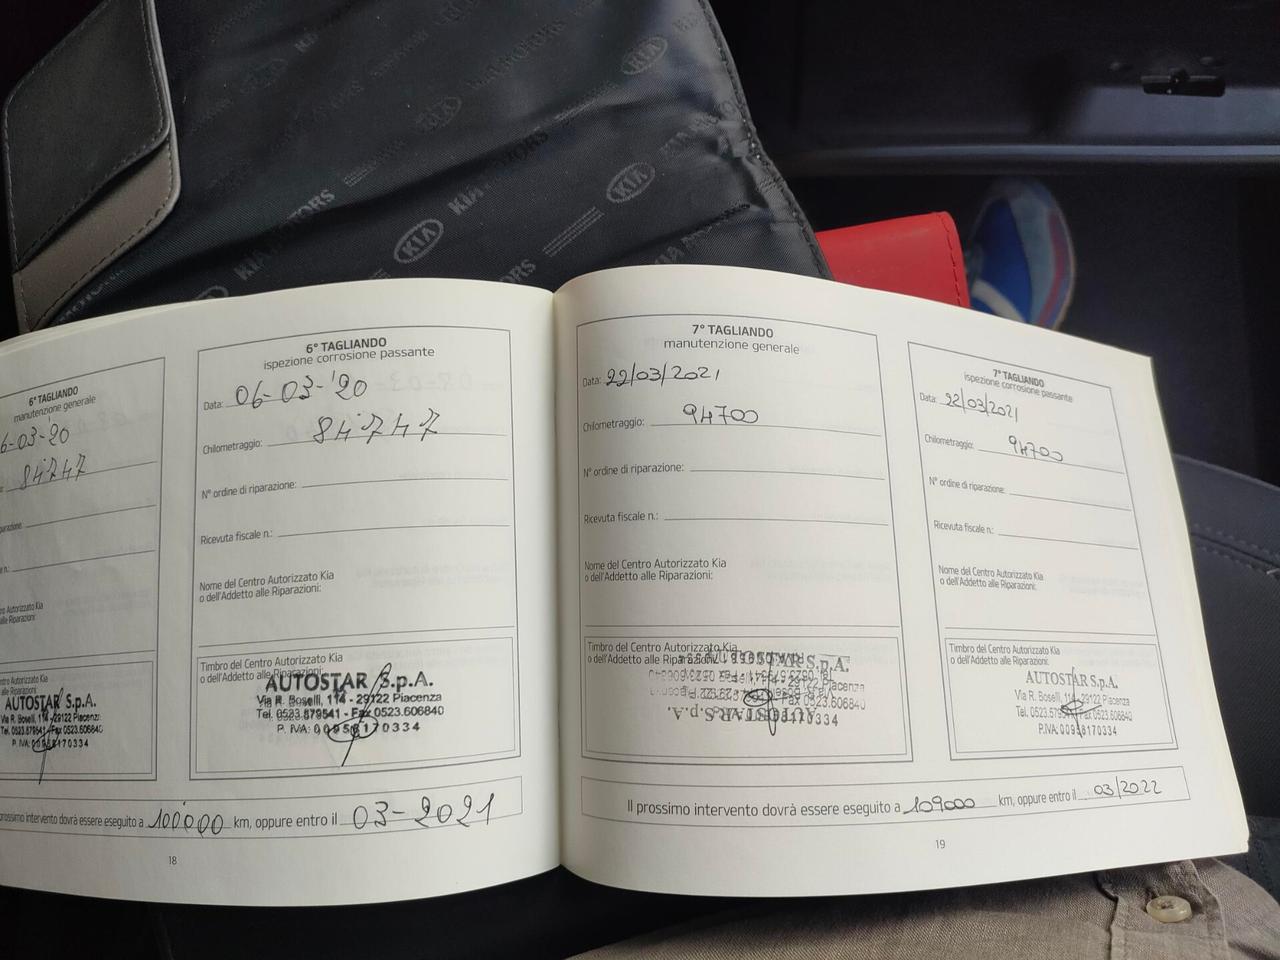 KIA MOTORS
KIA
6° TAGLIANDO
manutenzione generale
6-03-'20
84747
riparazione:
n.:
ntro Autorizzato Kia
alle Riparazioni:
AUTOSTAR S.p.A.
Via R. Boselli, 114 - 29122 Piacenza
Tel. 0523.579541 - Fax 0523.606840
P. IVA: 00958170334
6° TAGLIANDO
ispezione corrosione passante
Data: 06-03-'20
Chilometraggio: 84747
N° ordine di riparazione:
Ricevuta fiscale n.:
Nome del Centro Autorizzato Kia
o dell'Addetto alle Riparazioni:
Timbro del Centro Autorizzato Kia
o dell'Addetto alle Riparazioni:
AUTOSTAR S.p.A.
Via R. Boselli, 114 - 29122 Piacenza
Tel. 0523.579541 - Fax 0523.606840
P. IVA: 00958170334
prossimo intervento dovrà essere eseguito a 100000 km, oppure entro il 03-2021
18
7° TAGLIANDO
manutenzione generale
Data: 22/03/2021
Chilometraggio: 94700
N° ordine di riparazione:
Ricevuta fiscale n.:
Nome del Centro Autorizzato Kia
o dell'Addetto alle Riparazioni:
Timbro del Centro Autorizzato Kia
o dell'Addetto alle Riparazioni:
AUTOSTAR S.p.A.
7° TAGLIANDO
ispezione corrosione passante
Data: 22/03/2021
Chilometraggio: 94700
N° ordine di riparazione:
Ricevuta fiscale n.:
Nome del Centro Autorizzato Kia
o dell'Addetto alle Riparazioni:
Timbro del Centro Autorizzato Kia
o dell'Addetto alle Riparazioni:
AUTOSTAR S.p.A.
Via R. Boselli, 114 - 29122 Piacenza
Tel. 0523.579541 - Fax 0523.606840
P.IVA: 00958170334
Il prossimo intervento dovrà essere eseguito a 109000 km, oppure entro il 03/2022
19